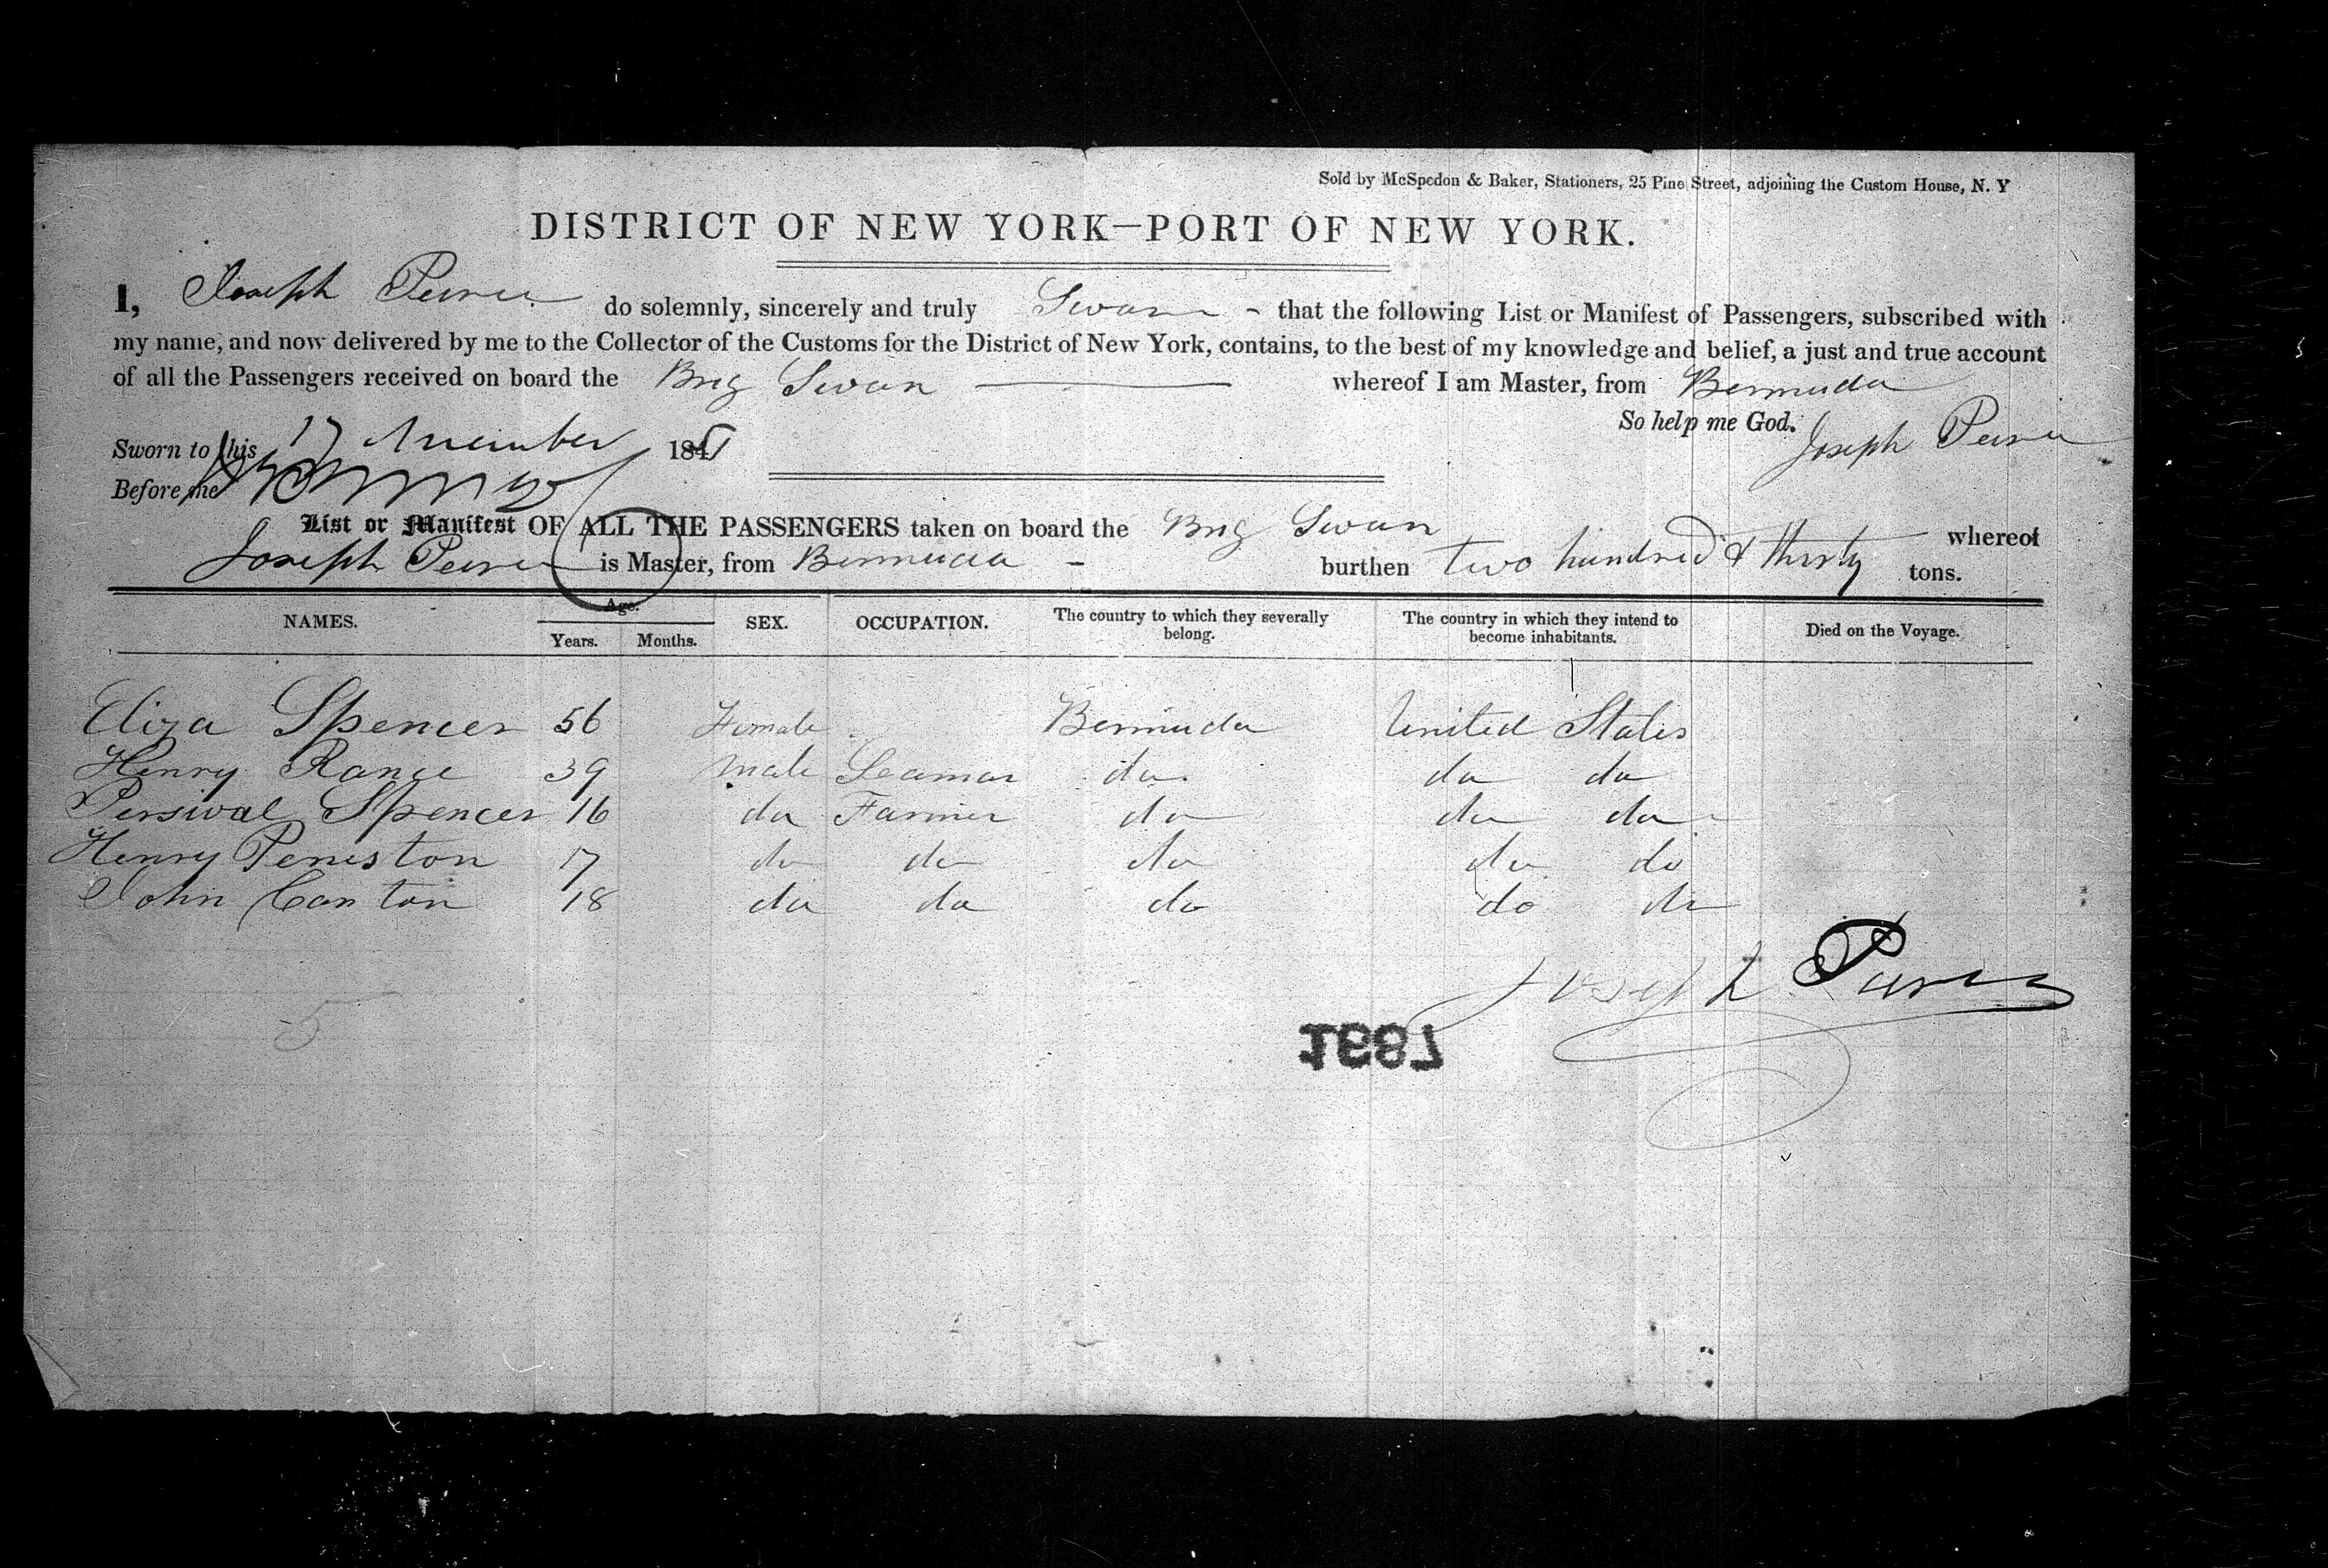 Sold by McSpedon & Baker, Stationers, 25 Pine Street, adjoining the Custom House, N. Y
DISTRICT OF NEW YORK—PORT OF NEW YORK.
I, Joseph do solemnly, sincerely and truly Swear - that the following List or Manifest of Passengers, subscribed with
my name, and now delivered by me to the Collector of the Customs for the District of New York, contains, to the best of my knowledge and belief, a just and true account
of all the Passengers received on board the Brig Swan whereof I am Master, from Bermuda
So help me God. Joseph
Sworn to this 17 184
Before me
List or Manifest OF ALL THE PASSENGERS taken on board the Brig Swan whereof
Joseph is Master, from Bermuda - burthen two hundred & thirty tons.
NAMES. Age. Years. Months. SEX. OCCUPATION. The country to which they severally belong. The country in which they intend to become inhabitants. Died on the Voyage.
Eliza Spencer 56 Female Bermuda United States
Henry Range 39 Male Seaman do do do
Persival Spencer 16 do Farmer do do do
Henry Peniston 17 do do do do do
John Canton 18 do do do do do
Joseph
5
1687